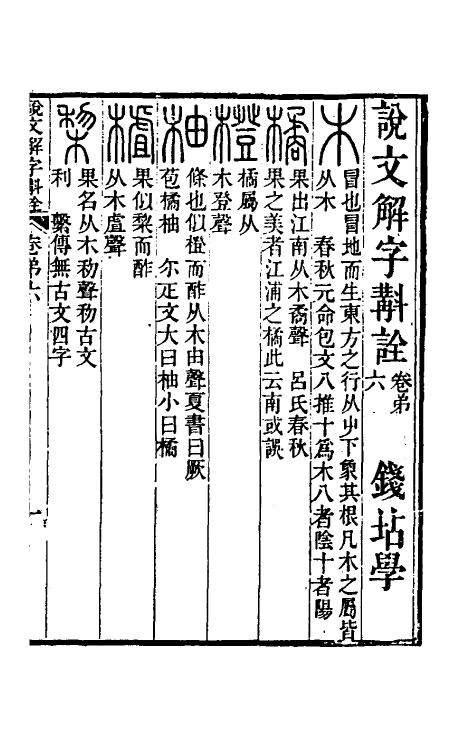 說文解字斠詮 卷弟六 錢坫學
木 冒也冒地而生東方之行从屮下象其根凡木之屬皆
从木 春秋元命包文八推十爲木八者陰十者陽
橘 果出江南从木矞聲 呂氏春秋
果之美者江浦之橘此云南或誤
橙 橘屬从
木登聲
柚 條也似橙而酢从木由聲夏書曰厥
苞橘柚 尒疋文大曰柚小曰橘
樝 果似棃而酢
从木虘聲
棃 果名从木𥝢聲𥝢古文
利 繫傳無古文四字
說文解字斠詮 卷弟六 一